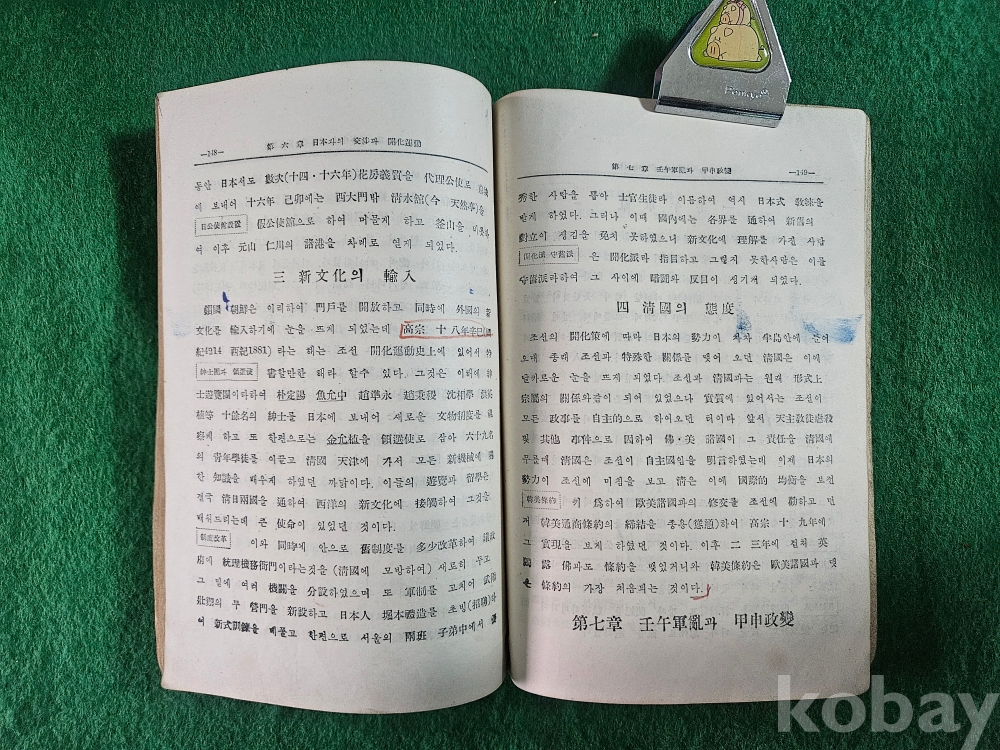 —148— 第六章 日本과의 交涉과 開化運動
동안 日本서도 數次(十四·十六年)花房義質을 代理公使로
에 보내어 十六年 己卯에는 西大門밖 清水館(今 天然亭)을
日公使館設置 假公使館으로 하여 머물게 하고 釜山을 비롯하
여 이후 元山 仁川의 諸港을 차례로 열게 되었다.
三 新文化의 輸入
鎖國 朝鮮은 이리하여 門戶를 開放하고 同時에 外國의
文化를 輸入하기에 눈을 뜨게 되었는데 高宗 十八年辛巳
紀4214 西紀1881) 라는 해는 조선 開化運動史上에 있어서
紳士團과 領選使 書할만한 해라 할수 있다. 그것은 이해에 紳
士遊覽團이라하여 朴定陽 魚允中 趙準永 趙秉稷 沈相學
植等 十餘名의 紳士를 日本에 보내어 새로운 文物制度를
察케 하고 또 한편으로는 金允植을 領選使로 삼아 六十九名
의 青年學徒를 이끌고 清國 天津에 가서 모든 新機械에
한 知識을 배우게 하였던 까닭이다. 이들의 遊覽과 留學은
결국 清日兩國을 通하여 西洋의 新文化에 接觸하여 그것을
배워드리는데 큰 使命이 있었던 것이다.
制度改革 이와 同時에 안으로 舊制度를 多少改革하여 議政
府에 統理機務衙門이라는것을 (清國에 모방하여) 새로히 두고
그 밑에 여러 機關을 分設하였으며 또 軍制를 고치어 武衛
壯禦의 두 營門을 新設하고 日本人 堀本禮造를 초빙(招聘)하
여 新式訓鍊을 베풀고 한편으로 서울의 兩班 子弟中에서
第七章 壬午軍亂과 甲申政變 —149—
秀한 사람을 뽑아 士官生徒라 이름하여 역시 日本式 敎鍊을
받게 하였다. 그러나 이때 國內에는 各界를 通하여 新舊의
對立이 생김을 免치 못하였으니 新文化에 理解를 가진 사람
開化派 守舊派 은 開化派라 指目하고 그렇지 못한사람은 이를
守舊派라하여 그 사이에 暗鬪와 反目이 생기게 되었다.
四 清國의 態度
조선의 開化策에 따라 日本의 勢力이 차차 半島안에 들어
오매 종래 조선과 特殊한 關係를 맺어 오던 清國은 이에
날카로운 눈을 뜨게 되었다. 조선과 清國과는 원래 形式上
宗屬의 關係와같이 되어 있었으나 實質에 있어서는 조선이
모든 政事를 自主的으로 하여오던 터이라 앞서 天主敎徒虐殺
및 其他 事件으로 因하여 佛·美 諸國이 그 責任을 清國에
무를때 清國은 조선이 自主國임을 明言하였는데 이제 日本의
勢力이 조선에 미침을 보고 清은 이에 國際的 均衡을 보전
韓美條約 키 爲하여 歐美諸國과의 修交를 조선에 勸하고 먼
저 韓美通商條約의 締結을 종용(慫慂)하여 高宗 十九年에
그 實現을 보게 하였던 것이다. 이후 二 三年에 걸쳐 英
露 佛과도 條約을 맺었거니와 韓美條約은 歐美諸國과 맺
은 條約의 가장 처음되는 것이다.
第七章 壬午軍亂과 甲申政變
kobay